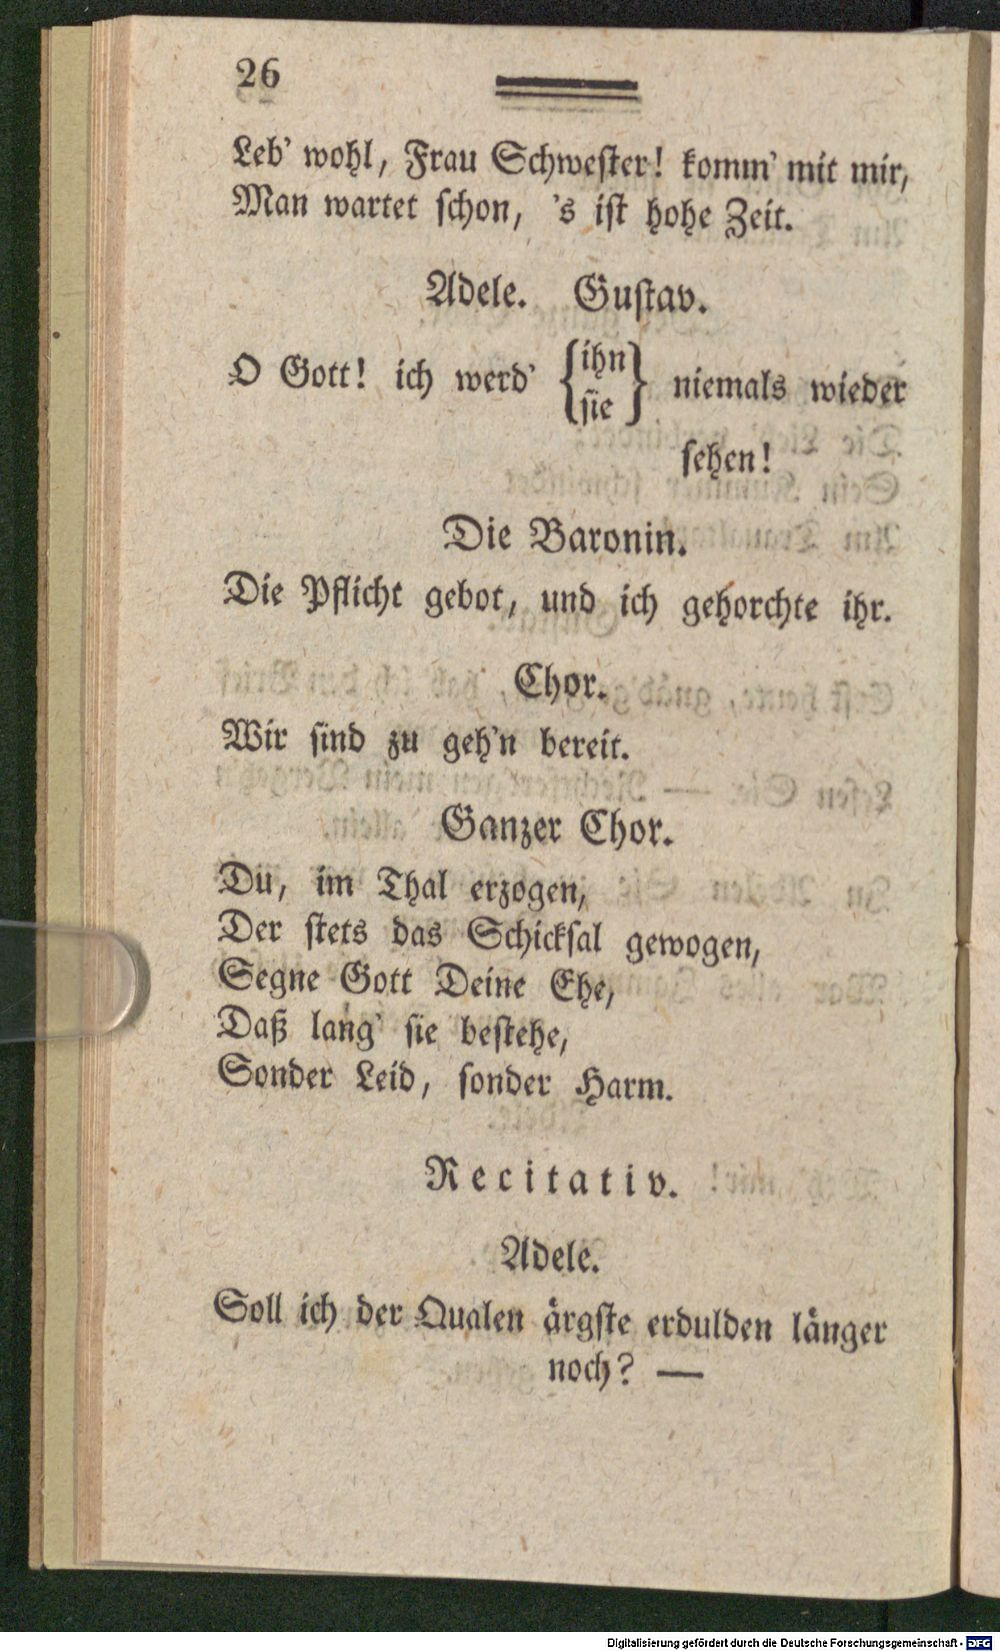 26
Leb' wohl, Frau Schwester! komm' mit mir,
Man wartet schon, 's ist hohe Zeit.
Adele. Gustav.
O Gott! ich werd' {ihn
sie} niemals wieder
sehen!
Die Baronin.
Die Pflicht gebot, und ich gehorchte ihr.
Chor.
Wir sind zu geh'n bereit.
Ganzer Chor.
Du, im Thal erzogen,
Der stets das Schicksal gewogen,
Segne Gott Deine Ehe,
Daß lang' sie bestehe,
Sonder Leid, sonder Harm.
Recitativ.
Adele.
Soll ich der Qualen ärgste erdulden länger
noch? —
Digitalisierung gefördert durch die Deutsche Forschungsgemeinschaft - DFG